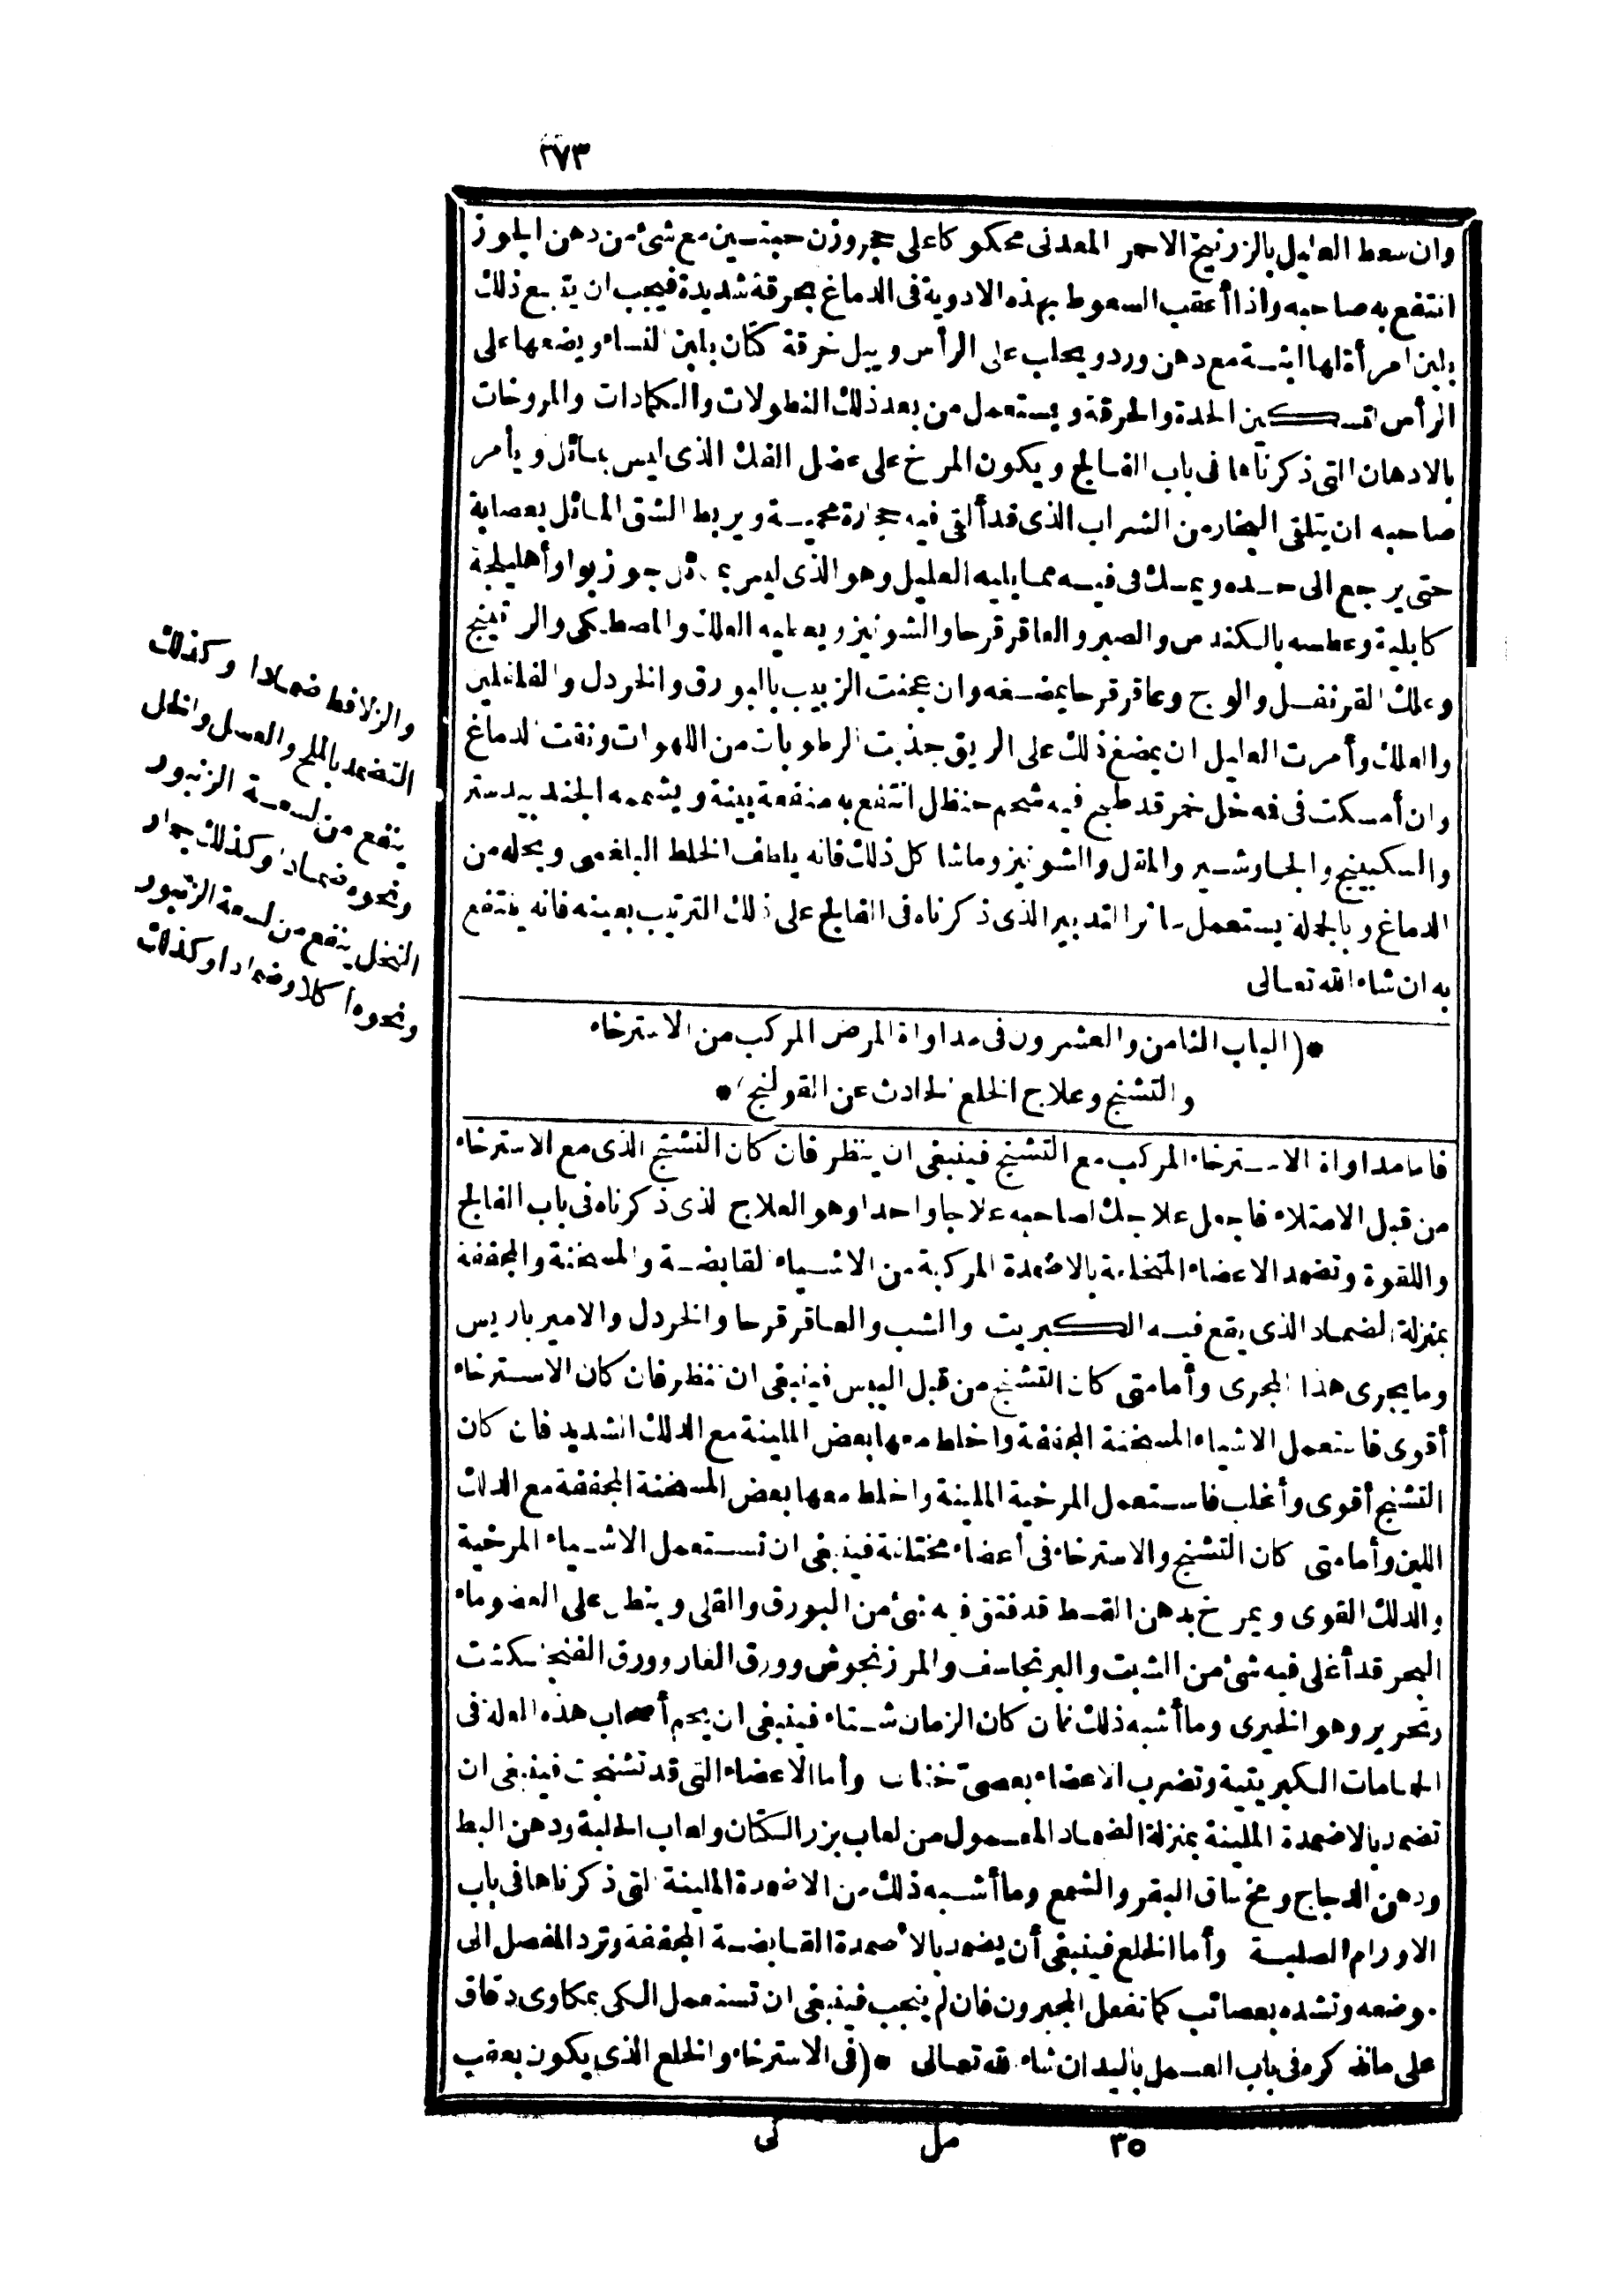 ٢٧٣
وان سعط العليل بالزرنيخ الاحمر المعدنى محكوكا على حجر وزن حبتين مع شئ من دهن الجوز
انتفع به صاحبه واذا أعقب السعوط بهذه الادوية فى الدماغ بحرقة شديدة فيجب ان يتبع ذلك
بلبن امرأة لها ابنة مع دهن ورد ويحلب على الرأس ويبل خرقة كتان بلبن النساء ويضعها على
الرأس لتسكين الحدة والحرقة ويستعمل من بعد ذلك النطولات والكمادات والمروخات
بالادهان التى ذكرناها فى باب الفالج ويكون المرخ على عضل الفك الذى ليس بمائل ويأمر
صاحبه ان يتلقى البخار من الشراب الذى قد ألقى فيه حجارة محمية ويربط الشق المائل بعصابة
حتى يرجع الى حده ويمسك فى فيه مما يليه العليل وهو الذى ليس بمائل جوز بوا وأهليلجة
كابلية وعطسه بالكندس والصبر والعاقرقرحا والشونيز ويعطيه العلك والمصطكى والراتينج
وعلك القرنفل والوج وعاقرقرحا يمضغه وان عجنت الزبيب بالبورق والخردل والفلفلين
والعلك وأمرت العليل ان يمضغ ذلك على الريق جذبت الرطوبات من اللهوات ونقت الدماغ
وان أمسكت فى فه خل خمر قد طبخ فيه شحم حنظل انتفع به منفعة بينة ويشممه الجندبيدستر
والسكبينج والجاوشير والمقل والشونيز وماشا كل ذلك فانه يلطف الخلط البلغمى ويحله من
الدماغ وبالجملة يستعمل سائر التدبير الذى ذكرناه فى الفالج على ذلك الترتيب بعينه فانه ينتفع
به ان شاء الله تعالى
*(الباب الثامن والعشرون فى مداواة المرض المركب من الاسترخاء
والتشنج وعلاج الخلع الحادث عن القولنج)*
فاما مداواة الاسترخاء المركب مع التشنج فينبغى ان ينظر فان كان التشنج الذى مع الاسترخاء
من قبل الامتلاء فاجعل علاجك لصاحبه علاجا واحدا وهو العلاج الذى ذكرناه فى باب الفالج
واللقوة وتضمد الاعضاء المتخلعة بالاضمدة المركبة من الاشياء القابضة والمسخنة والمجففة
بمنزلة الضماد الذى يقع فيه الكبريت والشب والعاقرقرحا والخردل والامير باريس
وما يجرى هذا المجرى وأما متى كان التشنج من قبل اليبس فينبغى ان تنظر فان كان الاسترخاء
أقوى فاستعمل الاشياء المسخنة المجففة واخلط معها بعض الملينة مع الدلك الشديد فان كان
التشنج أقوى وأغلب فاستعمل المرخية الملينة واخلط معها بعض المسخنة المجففة مع الدلك
اللين وأما متى كان التشنج والاسترخاء فى أعضاء مختلفة فينبغى ان تستعمل الاشياء المرخية
والدلك القوى ويمرخ بدهن القسط قد فتق فيه شئ من البورق والقلى وينطل على العضو ماء
البحر قد أغلى فيه شئ من الشبت والبرنجاسف والمرزنجوش وورق الغار وورق الفنجنكشت
وهو الخيرى وما أشبه ذلك فان كان الزمان شتاء فينبغى ان يحم أصحاب هذه العلة فى
الحمامات الكبريتية وتضرب الاعضاء بعصى وأما الاعضاء التى قد تشنجت فينبغى ان
تضمد بالاضمدة الملينة بمنزلة الضماد المعمول من لعاب بزر الكتان ولعاب الحلبة ودهن البط
ودهن الدجاج ومخ ساق البقر والشمع وما أشبه ذلك من الاضمدة الملينة التى ذكرناها فى باب
الاورام الصلبة وأما الخلع فينبغى أن يضمد بالأضمدة القابضة المجففة وترد المفصل الى
موضعه وتشده بعصائب كما تفعل المجبرون فان لم ينجب فينبغى ان تستعمل الكى بمكاوى دقاق
على ما نذكره فى باب العمل باليد ان شاء الله تعالى *(فى الاسترخاء والخلع الذى يكون بعقب
٣٥ مل نى
والزلافط ضمادا وكذلك
التضمد بالملح والعسل والخل
ينفع من لسعة الزنبور
ونحوه ضمادا وكذلك جمار
النخل ينفع من لسعة الزنبور
ونحوه أكلا وضمادا وكذلك